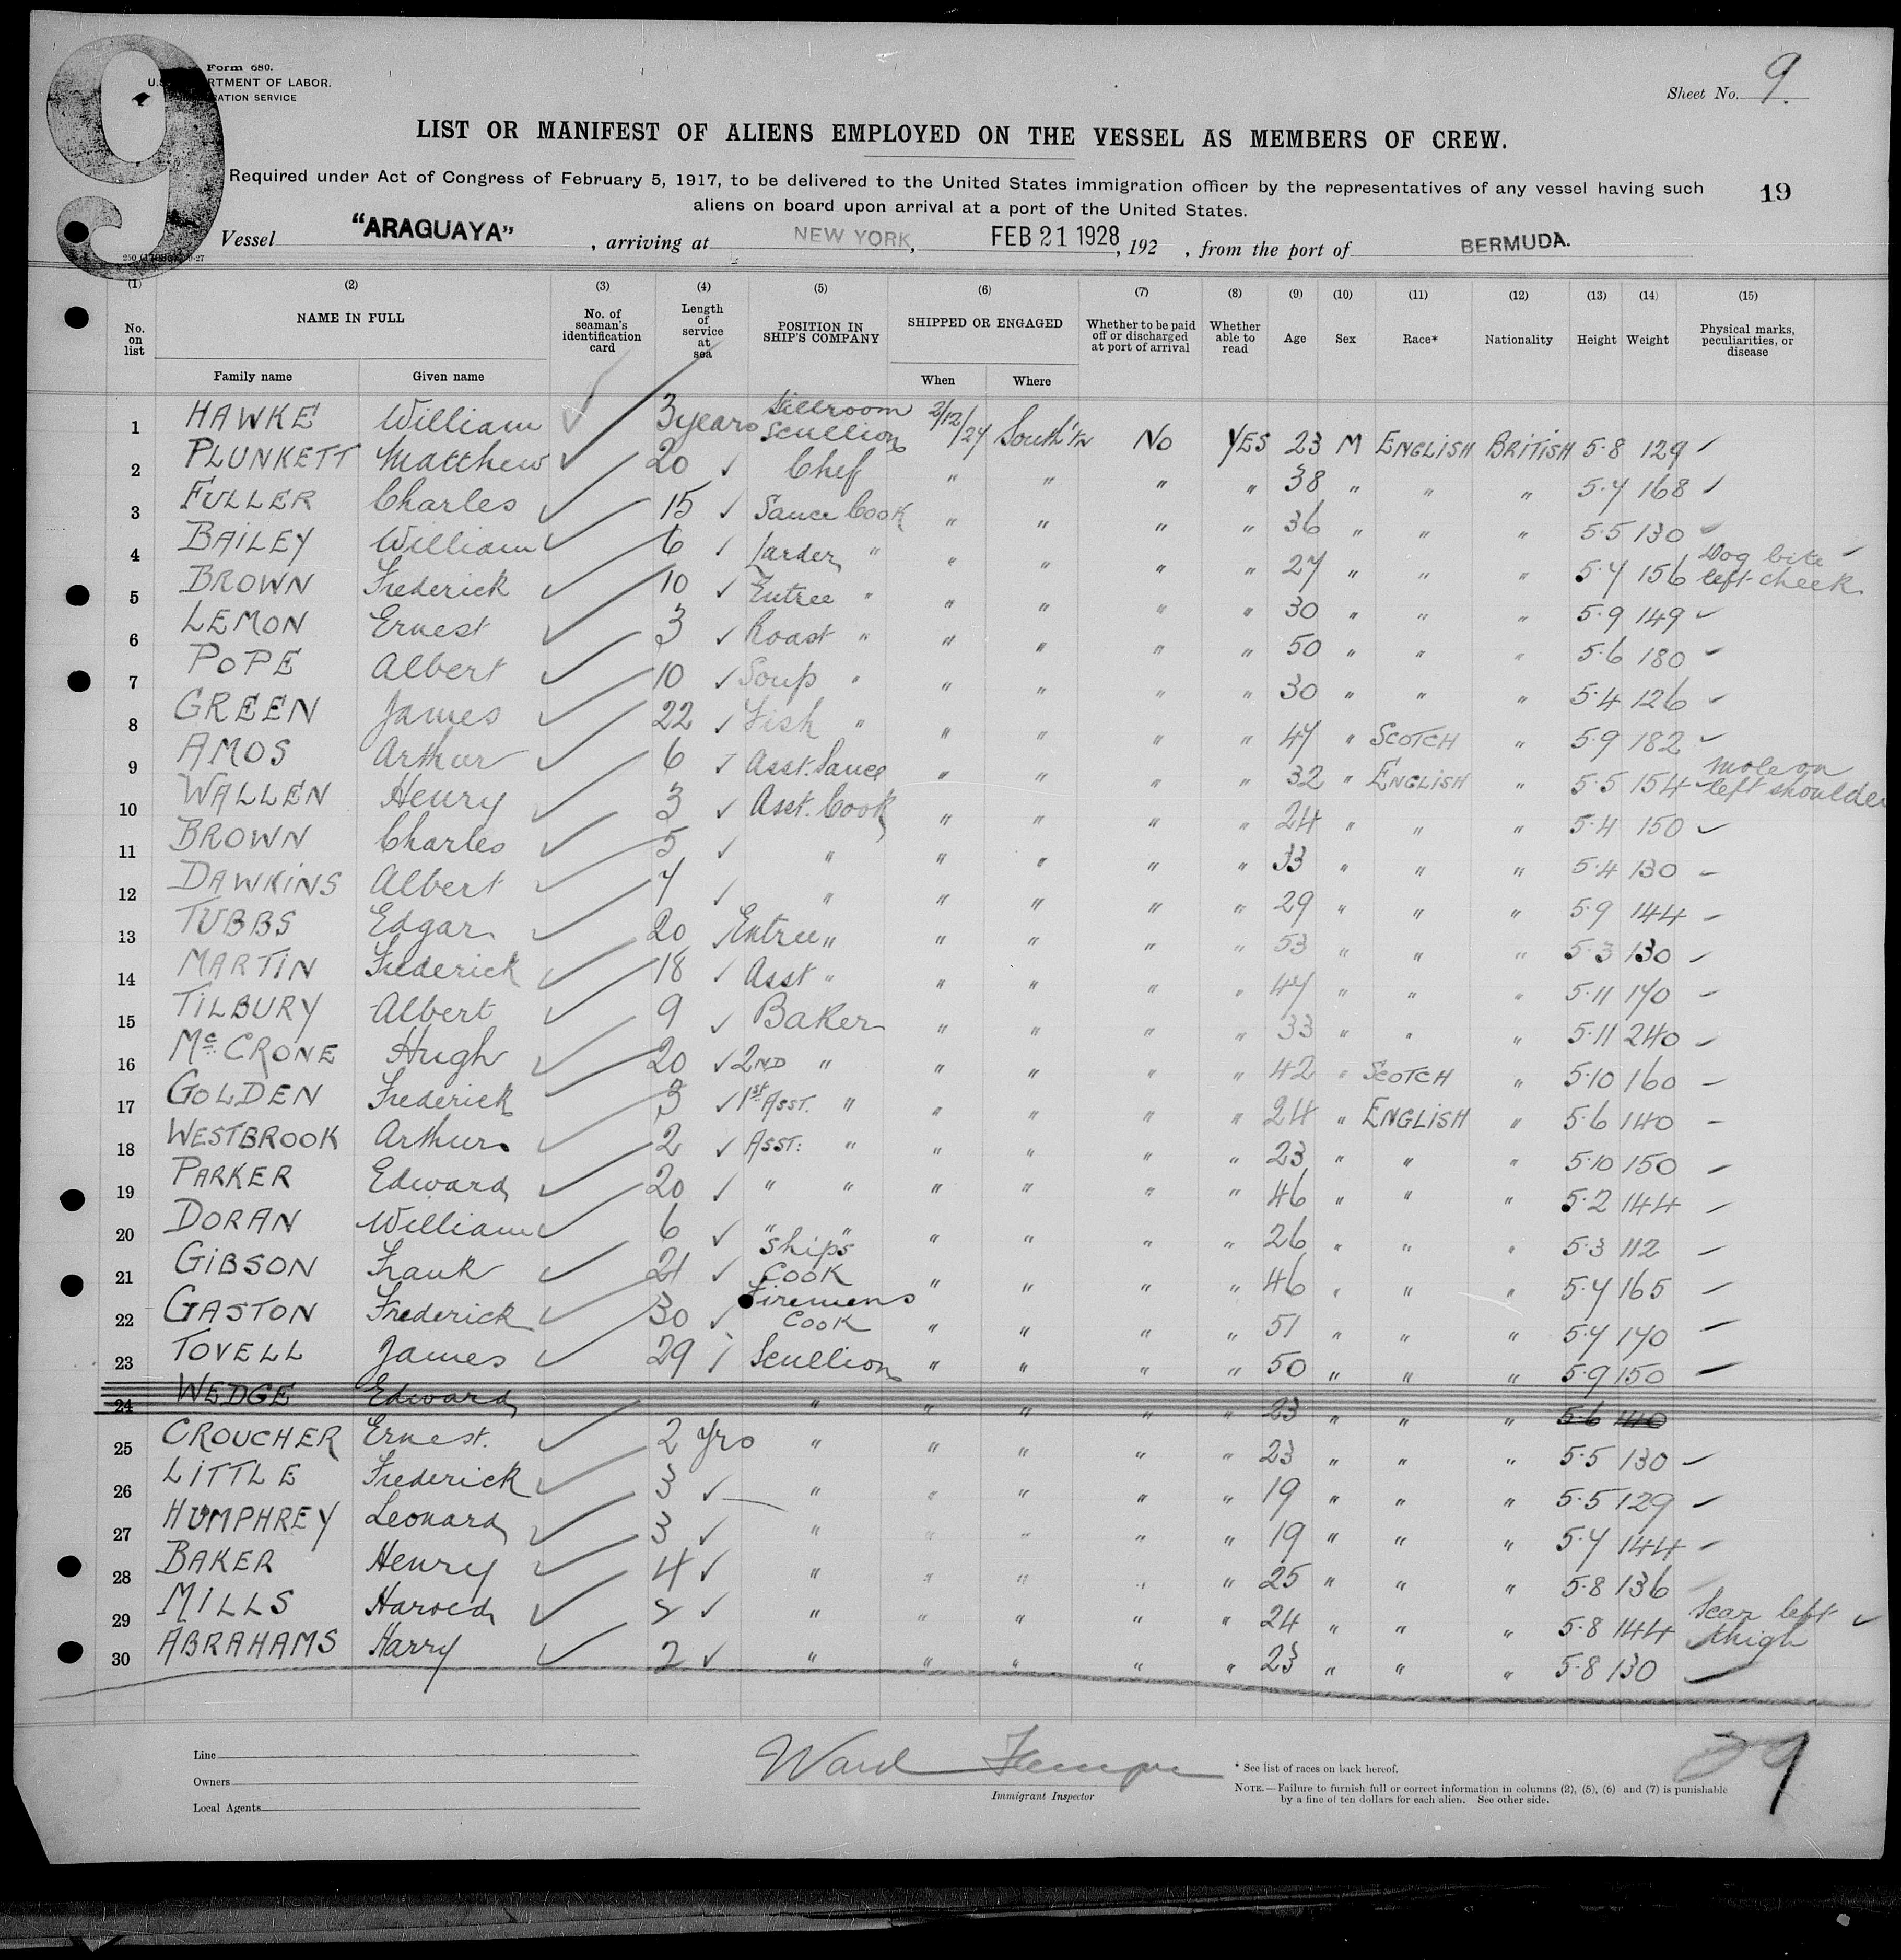 9
Form 680.
U.S. DEPARTMENT OF LABOR.
IMMIGRATION SERVICE
Sheet No. 9.
LIST OR MANIFEST OF ALIENS EMPLOYED ON THE VESSEL AS MEMBERS OF CREW.
Required under Act of Congress of February 5, 1917, to be delivered to the United States immigration officer by the representatives of any vessel having such
aliens on board upon arrival at a port of the United States.
19
Vessel "ARAGUAYA" , arriving at NEW YORK, FEB 21 1928 , 192 , from the port of BERMUDA.
(1) (2) (3) (4) (5) (6) (7) (8) (9) (10) (11) (12) (13) (14) (15)
No. on list NAME IN FULL No. of seaman's identification card Length of service at sea POSITION IN SHIP'S COMPANY SHIPPED OR ENGAGED Whether to be paid off or discharged at port of arrival Whether able to read Age Sex Race* Nationality Height Weight Physical marks, peculiarities, or disease
Family name Given name When Where
1 HAWKE William 3 years Stillroom Scullion 2/12/27 South'tn No YES 23 M ENGLISH BRITISH 5·8 129 ✓
2 PLUNKETT Matthew 20 ✓ Chef " " " " 38 " " " 5·7 168 ✓
3 FULLER Charles 15 ✓ Sauce Cook " " " " 36 " " " 5·5 130 ✓
4 BAILEY William 6 ✓ Larder " " " " " 27 " " " 5·7 156 Dog bite left cheek ✓
5 BROWN Frederick 10 ✓ Entree " " " " " 30 " " " 5·9 149 ✓
6 LEMON Ernest 3 ✓ Roast " " " " " 50 " " " 5·6 180 ✓
7 POPE Albert 10 ✓ Soup " " " " " 30 " " " 5·4 126 ✓
8 GREEN James 22 ✓ Fish " " " " " 47 " SCOTCH " 5·9 182 ✓
9 AMOS Arthur 6 ✓ Asst. Sauce " " " " 32 " ENGLISH " 5·5 154 Mole on left shoulder
10 WALLEN Henry 3 ✓ Asst. Cook " " " " 24 " " " 5·4 150 ✓
11 BROWN Charles 5 ✓ " " " " " 33 " " " 5·4 130 ✓
12 DAWKINS Albert 7 ✓ " " " " " 29 " " " 5·9 144 ✓
13 TUBBS Edgar 20 ✓ Entree " " " " " 53 " " " 5·3 130 ✓
14 MARTIN Frederick 18 ✓ Asst " " " " " 47 " " " 5·11 170 ✓
15 TILBURY Albert 9 ✓ Baker " " " " 33 " " " 5·11 240 ✓
16 McCRONE Hugh 20 ✓ 2ND " " " " " 42 " SCOTCH " 5·10 160 ✓
17 GOLDEN Frederick 3 ✓ 1st Asst. " " " " " 24 " ENGLISH " 5·6 140 ✓
18 WESTBROOK Arthur 2 ✓ ASST: " " " " " 23 " " " 5·10 150 ✓
19 PARKER Edward 20 ✓ " " " " " " 46 " " " 5·2 144 ✓
20 DORAN William 6 ✓ " " " " " " 26 " " " 5·3 112 ✓
21 GIBSON Frank 21 ✓ Ships Cook " " " " 46 " " " 5·7 165 ✓
22 GASTON Frederick 30 ✓ Firemens Cook " " " " 51 " " " 5·7 170 ✓
23 TOVELL James 29 ✓ Scullion " " " " 50 " " " 5·9 150 ✓
24 WEDGE Edward " " " " " 23 " " " 5·6 140
25 CROUCHER Ernest. 2 yrs " " " " " 23 " " " 5·5 130 ✓
26 LITTLE Frederick 3 ✓ " " " " " 19 " " " 5·5 129 ✓
27 HUMPHREY Leonard 3 ✓ " " " " " 19 " " " 5·7 144 ✓
28 BAKER Henry 4 ✓ " " " " " 25 " " " 5·8 136
29 MILLS Harold ✓ " " " " " 24 " " " 5·8 144 Scar left thigh ✓
30 ABRAHAMS Harry 2 ✓ " " " " " 23 " " " 5·8 130 ✓
Line
Owners
Local Agents
Ward
Immigrant Inspector
* See list of races on back hereof.
NOTE.—Failure to furnish full or correct information in columns (2), (5), (6) and (7) is punishable
by a fine of ten dollars for each alien. See other side.
29